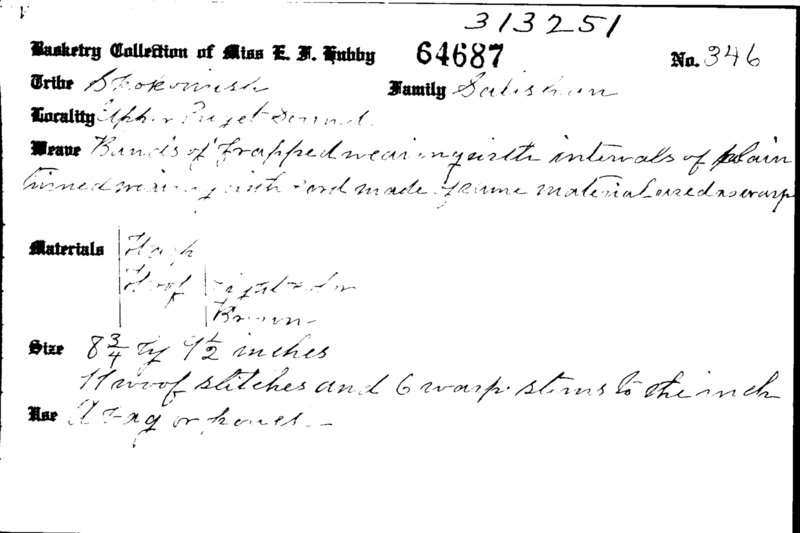 313251
Basketry Collection of Miss E. F. Hubby 64687 No. 346
Tribe Skokomish Family Salishan
Locality Upper Puget Sound
Weave Bands of wrapped weaving with intervals of plain
twined weaving with cord made of same material used as warp
Materials Warp
Woof
Brown
Size 8 3/4 by 9 1/2 inches
11 woof stitches and 6 warp stems to the inch
Use A bag or pouch